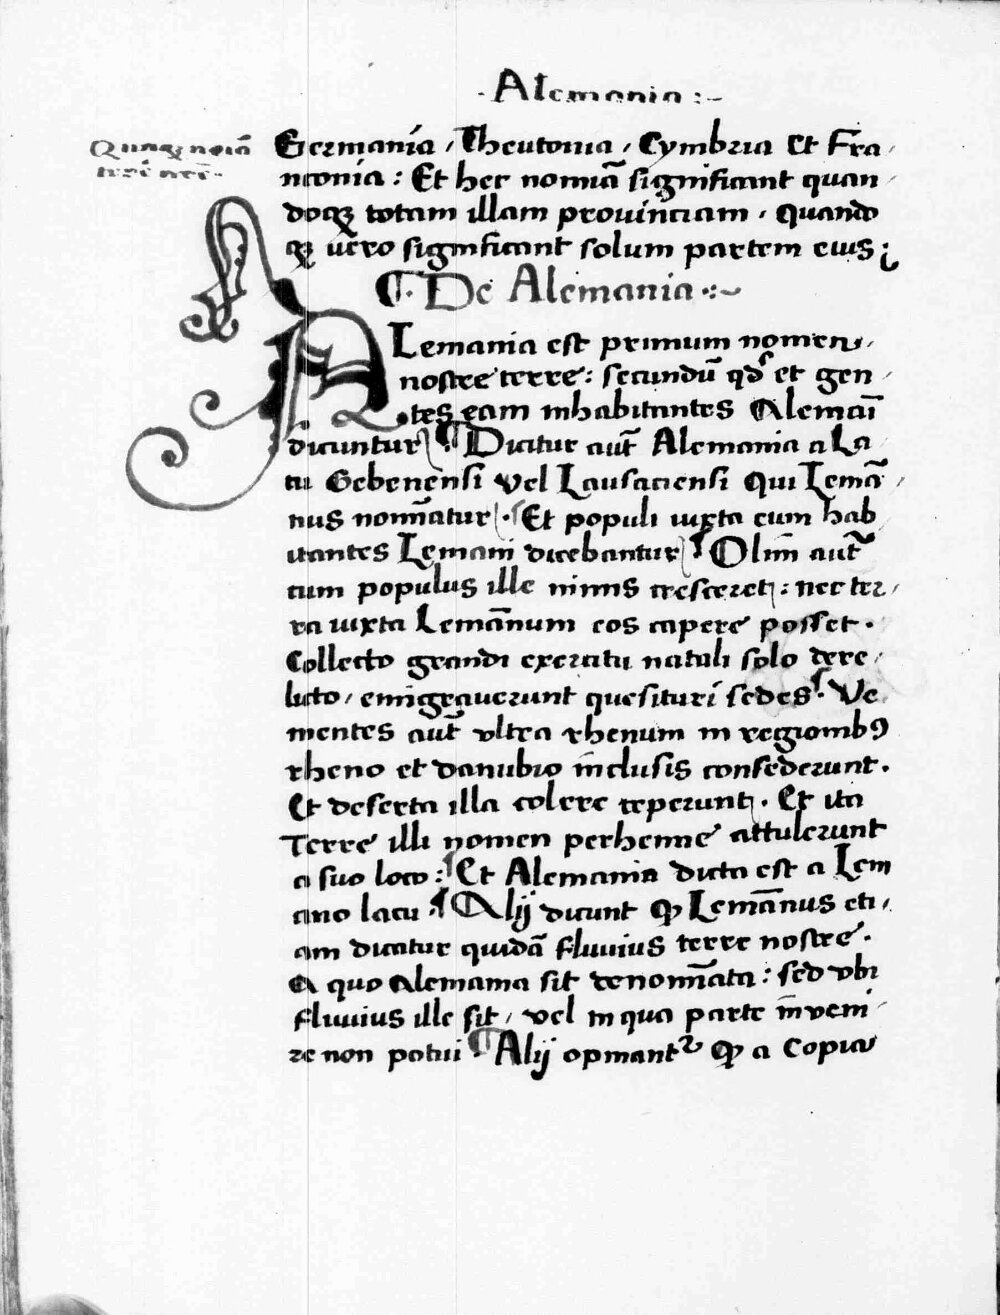 · Alemania :~
Quinq; noīa
nr̄i
Germanía / Theutonia / Cymbria Et Fra /
nconia : Et hec nomīa significant quan /
doq; totam illam prouinciam . Quando
q; uēro significant solum partem eius ;
¶ · De Alemania .:~
ALemania est primum nomen /
nostre terre : secundū qd et gen /
tes eam inhabitantes Alemāi
dicuntur ¶ Dicitur aut̄ Alemania a La /
cu Gebenensi vel Lausanensi Qui Lemā /
nus nomīatur . ¶ Et populi iuxta eum hab /
itantes Lemani dicebantur ¶ Olim aut̄
cum populus ille nimis cresceret : nec ter /
ra iuxta Lemānum eos capere posset .
Collecto grandi exercitu natali solo dere /
licto / emigrauerunt quesituri sedes . Ve
nientes aut̄ vltra rhenum in regionibꝰ
rheno et danubio īnclusis consederunt .
Et deserta illa colere ceperunt . Et ita
Terre illi nomen perhenne attulerunt
a suo loco : ¶ Et Alemania dicta est a Lem
ano lacu . ¶ Alij dicunt ꝙ Lemānus eti /
am dicatur quidā fluuius terre nostre .
A quo Alemania sit denomīata : sed vbi
fluuius ille sit / vel in qua parte īnveni /
re non potui ¶ Alij opinant᷑ ꝙ a copia